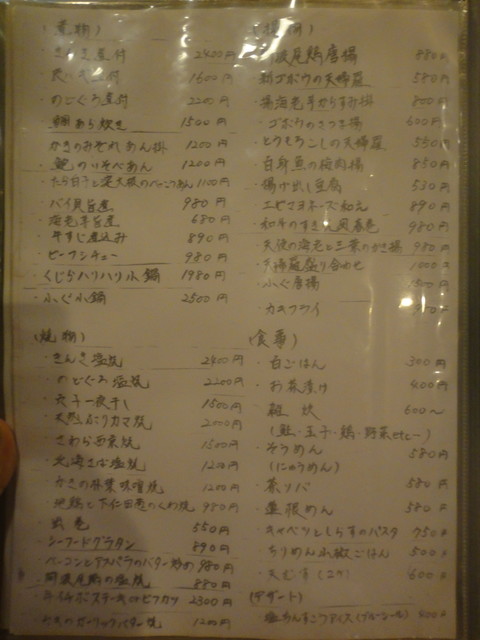 (煮物)
・きんき煮付 2400円
煮付 1600円
・のどぐろ煮付 2200円
・鯛あら炊き 1500円
・かきのみぞれあん掛 1200円
・鮑のいそべあん 1200円
・たら白子と 1100円
・バイ貝旨煮 980円
・海老芋旨煮 680円
・牛すじ煮込み 890円
・ビーフシチュー 980円
・くじらハリハリ小鍋 1980円
・ふぐ小鍋 2500円
(焼物)
・きんき塩焼 2400円
・のどぐろ塩焼 2200円
一夜干し 1500円
・天然ぶりカマ焼 2000円
・さわら西京焼 1300円
・北海さば塩焼 1200円
味噌焼 1200円
・地鶏と下仁田葱のくわ焼 980円
550円
・シーフードグラタン 890円
・ベーコンとアスパラのバター炒め 980円
・阿波尾鶏の塩焼 880円
2300円
ガーリックバター焼 1200円
(揚物)
阿波尾鶏唐揚 880円
新ゴボウの天婦羅 580円
・揚海老芋からすみ掛 800円
・ゴボウのさつま揚 600円
・とうもろこしの天婦羅 550円
・白身魚の梅肉揚 850円
・揚げ出し豆腐 530円
・エビマヨネーズ和え 890円
980円
・天使の海老と三葉のかき揚 980円
・天婦羅盛り合わせ
・ふぐ唐揚 1500円
・カキフライ
(食事)
・白ごはん 300円
・お茶漬け 400円
・雑炊 600〜
(鮭・玉子・鶏・野菜
・そうめん 580円
(にゅうめん)
・茶ソバ 580円
・蓮根めん 580円
・キャベツとしらすのパスタ 750円
・ちりめん山椒ごはん 500円
・天むす 600円
(デザート)
・塩あんきこアイス(ブルーシール) 400円